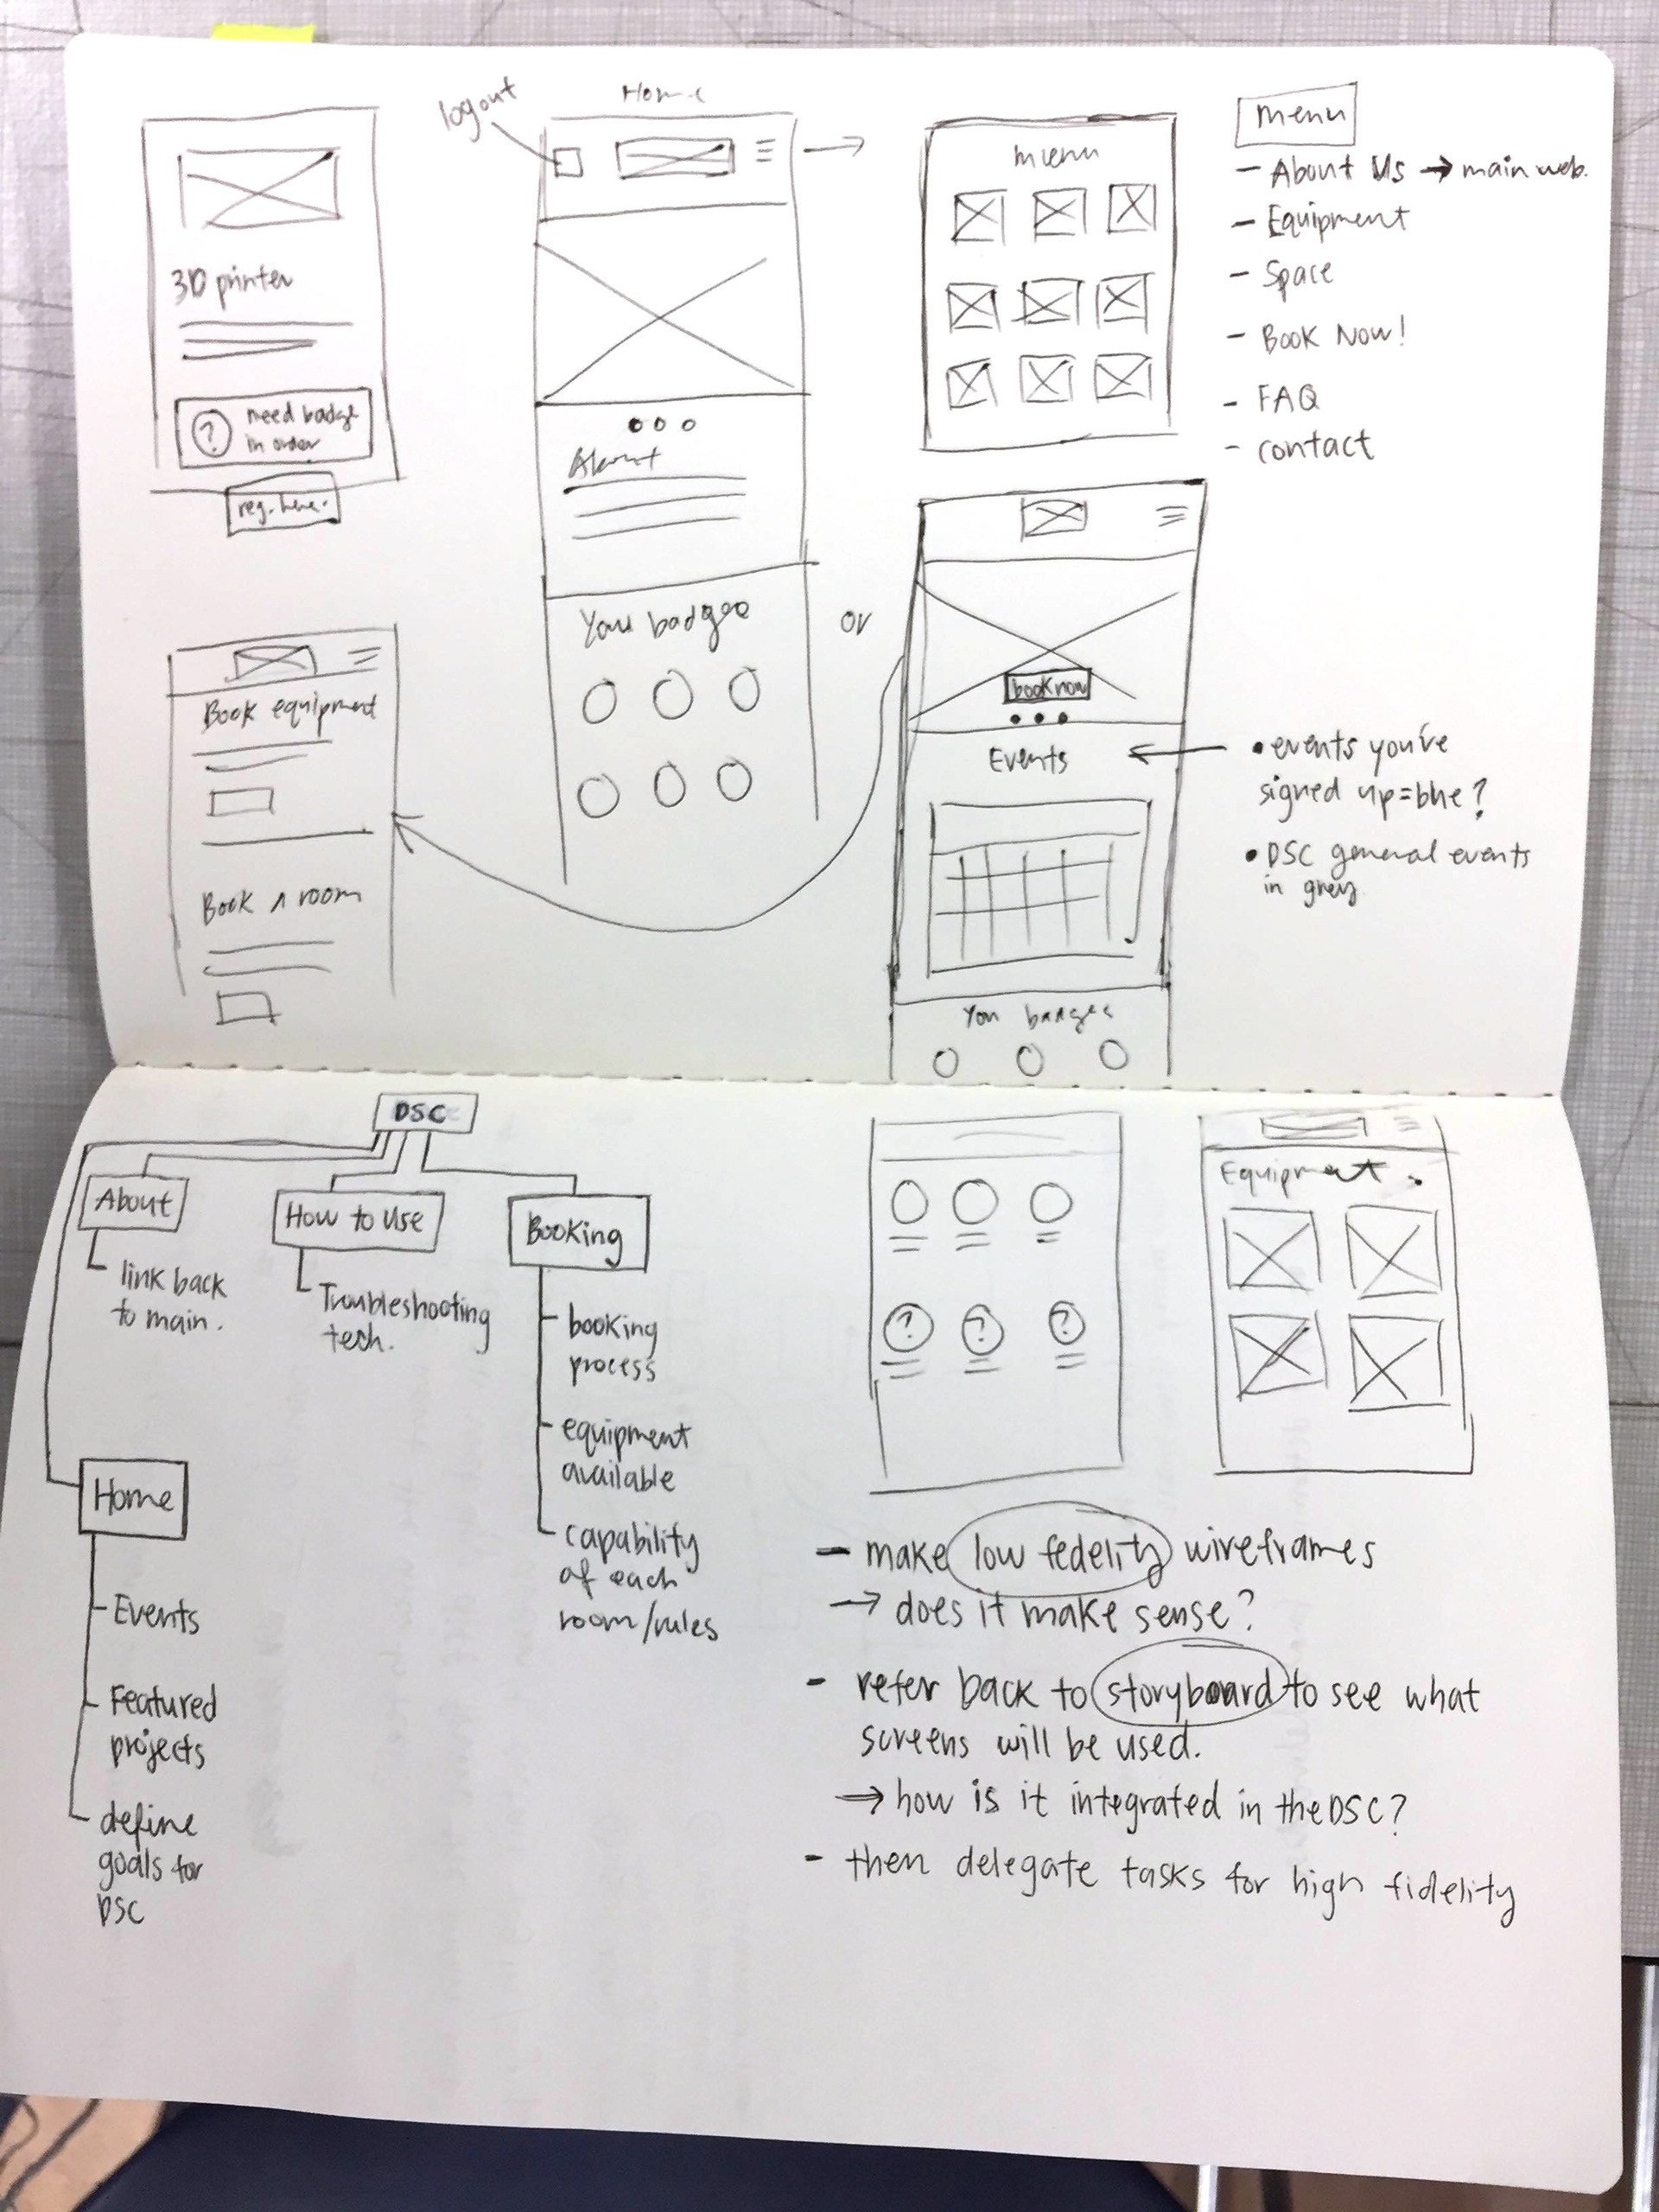 3D printer
need badge
in order
reg. here.
logout
Home
About
Your badges
menu
menu
- About Us → main web.
- Equipment
- Space
- Book Now!
- FAQ
- contact
or
book now
Events
• events you've
signed up=blue?
• DSC general events
in grey
You badges
Book equipment
Book A room
DSC
About
link back
to main.
How to Use
Troubleshooting
tech.
Booking
booking
process
equipment
available
capability
of each
room/rules
Home
Events
Featured
projects
define
goals for
DSC
?
?
?
Equipment
- make low fedelity wireframes
→ does it make sense?
- refer back to storyboard to see what
screens will be used.
→ how is it integrated in the DSC?
- then delegate tasks for high fidelity